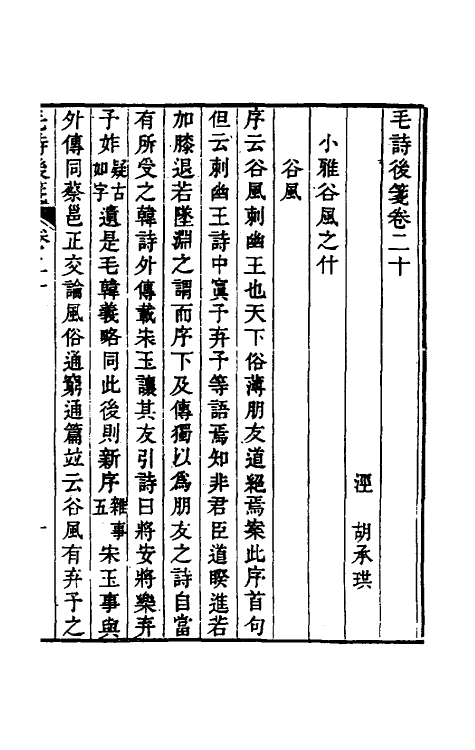 毛詩後箋卷二十
涇　胡承珙
小雅谷風之什
谷風
序云谷風刺幽王也天下俗薄朋友道絕焉案此序首句
但云刺幽王詩中寘予弃予等語焉知非君臣道睽進若
加膝退若墜淵之謂而序下及傳獨以爲朋友之詩自當
有所受之韓詩外傳載宋玉讓其友引詩曰將安將樂弃
予妰疑古如字遺是毛韓義略同此後則新序雜事五宋玉事與
外傳同蔡邕正交論風俗通窮通篇竝云谷風有弃予之